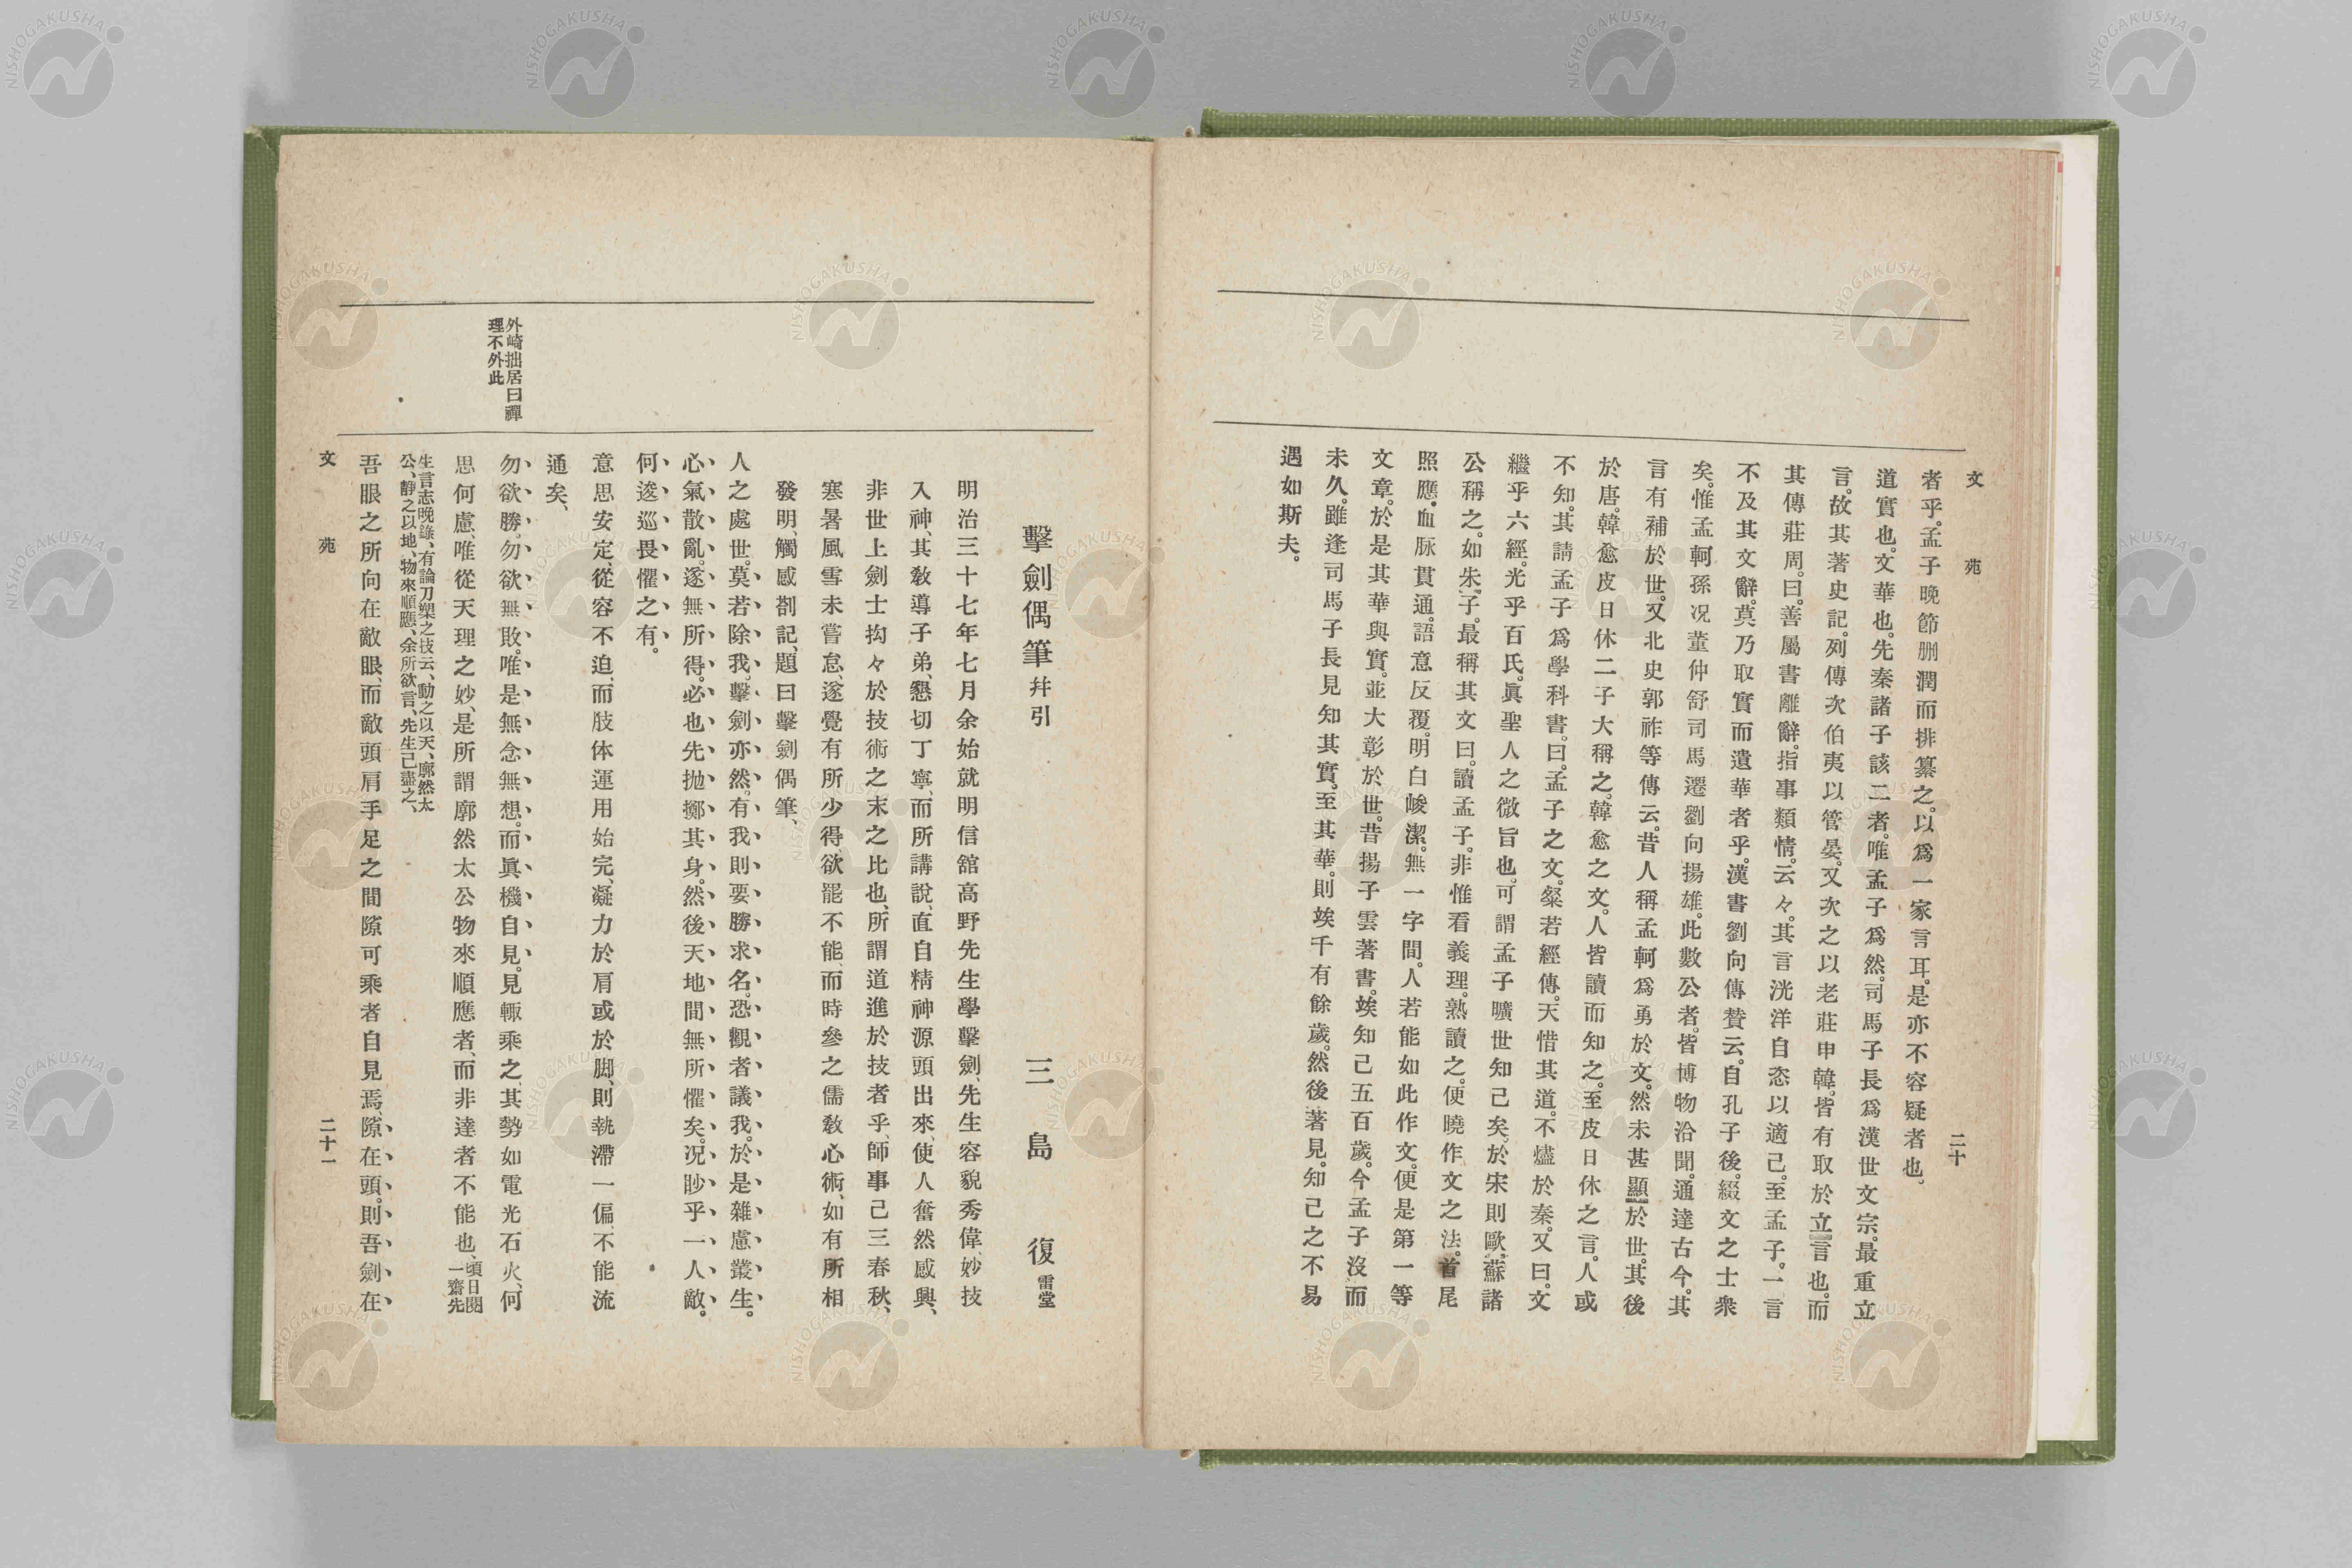 文苑
二十
者乎。孟子晚節刪潤而排纂之。以爲一家言耳。是亦不容疑者也。
道實也。文華也。先秦諸子該二者。唯孟子爲然。司馬子長爲漢世文宗。最重立
言。故其著史記。列傳次伯夷以管晏。又次之以老莊申韓。皆有取於立言也。而
其傳莊周。曰。善屬書離辭。指事類情。云々。其言洸洋自恣以適己。至孟子。一言
不及其文辭。莫乃取實而遺華者乎。漢書劉向傳贊云。自孔子後。綴文之士衆
矣。惟孟軻孫况董仲舒司馬遷劉向揚雄。此數公者。皆博物洽聞。通達古今。其
言有補於世。又北史郭祚等傳云。昔人稱孟軻爲勇於文。然未甚顯於世。其後
於唐。韓愈皮日休二子大稱之。韓愈之文。人皆讀而知之。至皮日休之言。人或
不知。其請孟子爲學科書。曰。孟子之文。粲若經傳。天惜其道。不燼於秦。又曰。文
繼乎六經。光乎百氏。眞聖人之微旨也。可謂孟子曠世知己矣。於宋則歐。蘇諸
公稱之。如朱子。最稱其文曰。讀孟子。非惟看義理。熟讀之。便曉作文之法。首尾
照應。血脉貫通。語意反覆。明白峻潔。無一字間。人若能如此作文。便是第一等
文章。於是其華與實。並大彰於世。昔揚子雲著書。竢知己五百歲。今孟子沒而
未久。雖逢司馬子長見知其實。至其華。則竢千有餘歲。然後著見。知己之不易
遇如斯夫。
擊劍偶筆幷引
三島復雷堂
明治三十七年七月余始就明信舘高野先生學擊劍、先生容貌秀偉、妙技
入神、其敎導子弟、懇切丁寧、而所講說、直自精神源頭出來、使人奮然感興、
非世上劍士抅々於技術之末之比也、所謂道進於技者乎、師事已三春秋、
寒暑風雪未嘗怠、遂覺有所少得、欲罷不能、而時參之儒敎心術、如有所相
發明、觸感剳記、題曰擊劍偶筆、
人之處世。莫若除我。擊劍亦然。有我則要勝求名。恐觀者議我。於是雜慮叢生。
心氣散亂。遂無所得。必也先抛擲其身。然後天地間無所懼矣。况眇乎一人敵。
何逡巡畏懼之有。
意思安定、從容不迫、而肢体運用始完、凝力於肩或於脚、則執滯一偏、不能流
通矣、
外崎拙居曰禪
理不外此
勿欲勝。勿欲無敗。唯是無念無想。而眞機自見。見輙乘之、其勢如電光石火、何
思何慮、唯從天理之妙、是所謂廓然太公物來順應者、而非達者不能也、頃日閱
一齋先
生言志晚錄、有論刀槊之技云、動之以天、廓然太
公、靜之以地、物來順應、余所欲言、先生已盡之、
吾眼之所向在敵眼、而敵頭肩手足之間隙可乘者自見焉、隙在頭。則吾劍在
文苑
二十一